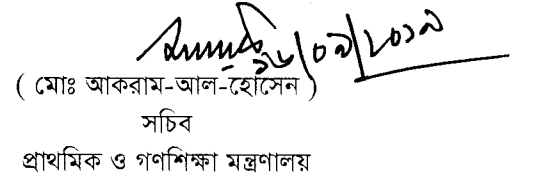 ১৮/০৯/২০১৯
( মোঃ আকরাম-আল-হোসেন )
সচিব
প্রাথমিক ও গণশিক্ষা মন্ত্রণালয়